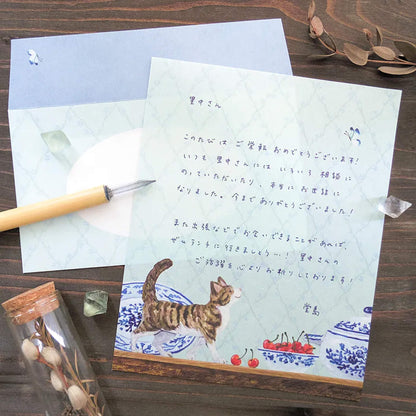 里中さん
このたびは ご栄転 おめでとうございます!
いつも 里中さんには いろいろ 相談に
のっていただいたり、本当に お世話に
なりました。今まで ありがとうございました!
また出張などで お会いできることがあれば、
ぜひランチに 行きましょうー! 里中さんの
ご活躍を 心より お祈りしております!
堂島